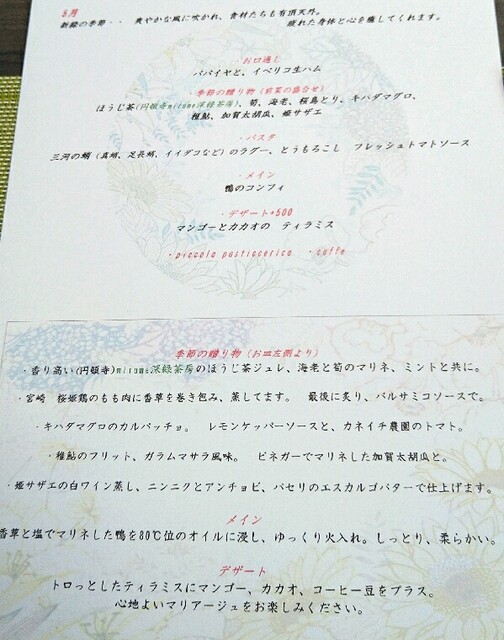 5月
新緑の季節・・ 爽やかな風に吹かれ、食材たちも有頂天外。
疲れた身体と心を癒してくれます。
お口通し
パパイヤと、イベリコ生ハム
・季節の贈り物（前菜の盛合せ）
ほうじ茶(円頓寺mirume深緑茶房)、筍、海老、桜島とり、キハダマグロ、
稚鮎、加賀太胡瓜、姫サザエ
・パスタ
三河の蛸（真蛸、足長蛸、イイダコなど）のラグー、とうもろこし フレッシュトマトソース
・メイン
鴨のコンフィ
・デザート+500
マンゴーとカカオの ティラミス
・piccola pasticceria ・caffe
季節の贈り物（お皿左側より）
・香り高い(円頓寺)mirume深緑茶房のほうじ茶ジュレ、海老と筍のマリネ、ミントと共に。
・宮崎 桜姫鶏のもも肉に香草を巻き込み、蒸してます。 最後に炙り、バルサミコソースで。
・キハダマグロのカルパッチョ。 レモンケッパーソースと、カネイチ農園のトマト。
・稚鮎のフリット、ガラムマサラ風味。 ビネガーでマリネした加賀太胡瓜と。
・姫サザエの白ワイン蒸し、ニンニクとアンチョビ、パセリのエスカルゴバターで仕上げます。
メイン
香草と塩でマリネした鴨を80℃位のオイルに浸し、ゆっくり火入れ。しっとり、柔らかい。
デザート
トロっとしたティラミスにマンゴー、カカオ、コーヒー豆をプラス。
心地よいマリアージュをお楽しみください。